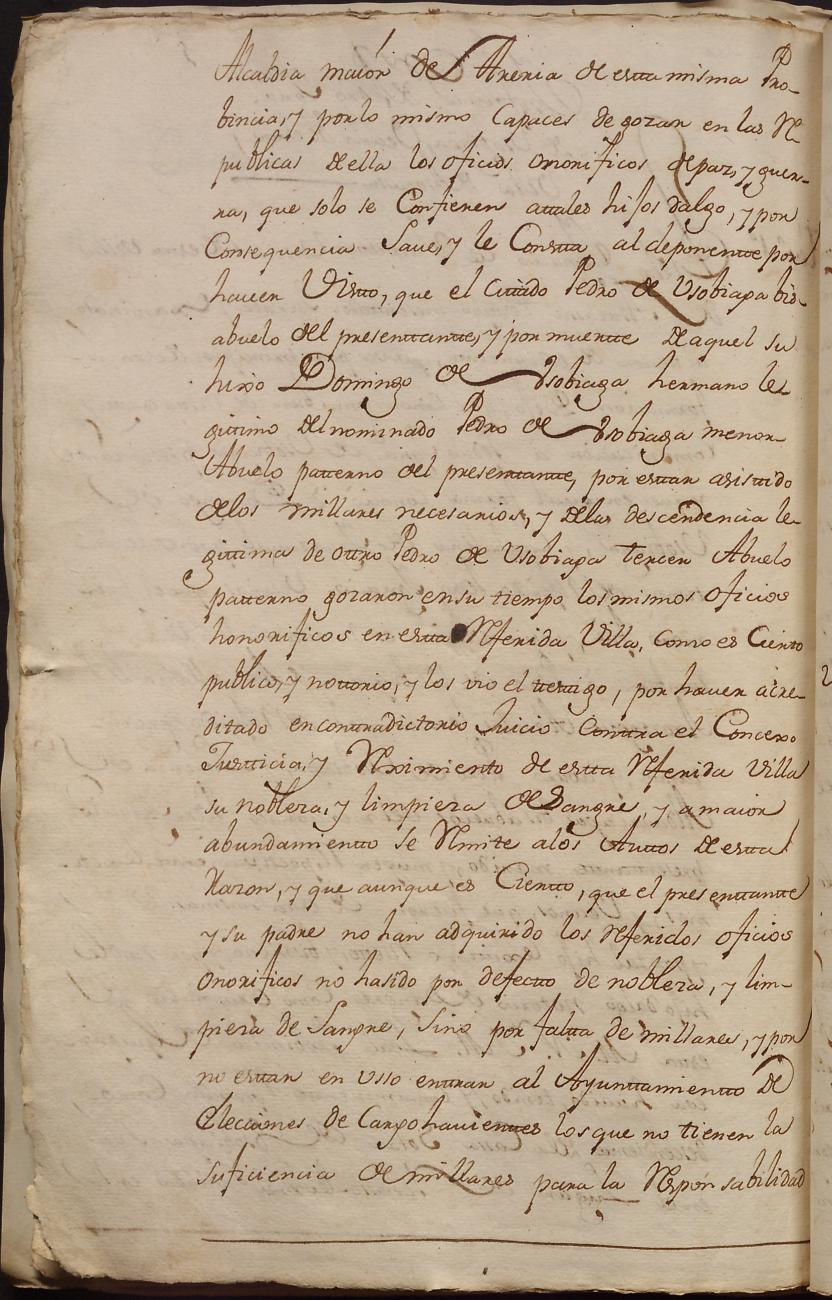 Alcaldia maior de Arreria de esta misma Pro-
bincia, y por lo mismo Capaces de gozar en las Re-
publicas de ella los oficios onorificos de paz, y guer-
ra, que solo se Confieren atales hijos dalgo, y por
Consequencia Save, y le Consta al deponente por
haver Visto, que el Citado Pedro de Usobiaga bis-
abuelo del presentante, y por muerte de aquel su
hixo Domingo de Usobiaga hermano le-
gitimo del nominado Pedro de Usobiaga menor
Abuelo patterno del presentante, por estar asistido
delos millares necesarios, y de las descendencia le-
gittima de ottro Pedro de Usobiaga tercer Abuelo
patterno gozaron en su tiempo los mismos oficios
honorificos en esta Referida Villa, como es Cierto
publico, y nottorio, y los vio el testigo, por haver acre-
ditado en contradictorio Juicio Contra el Concexo
Justticia, y Reximiento de esta Referida Villa
su nobleza, y limpieza de Sangre, y a maior
abundamiento se Remite alos Auttos de esta
Razon, y que aunque es Cierto, que el presentante
y su padre no han adquirido los Referidos oficios
onorificos no hasido por defecto de nobleza, y lim-
pieza de Sangre, Sino por falta de millares, y por
no estar en Usso entrar al Ayunttamiento de
Elecciones de Cargo havientes los que no tienen la
suficiencia de millares para la Responsabilidad